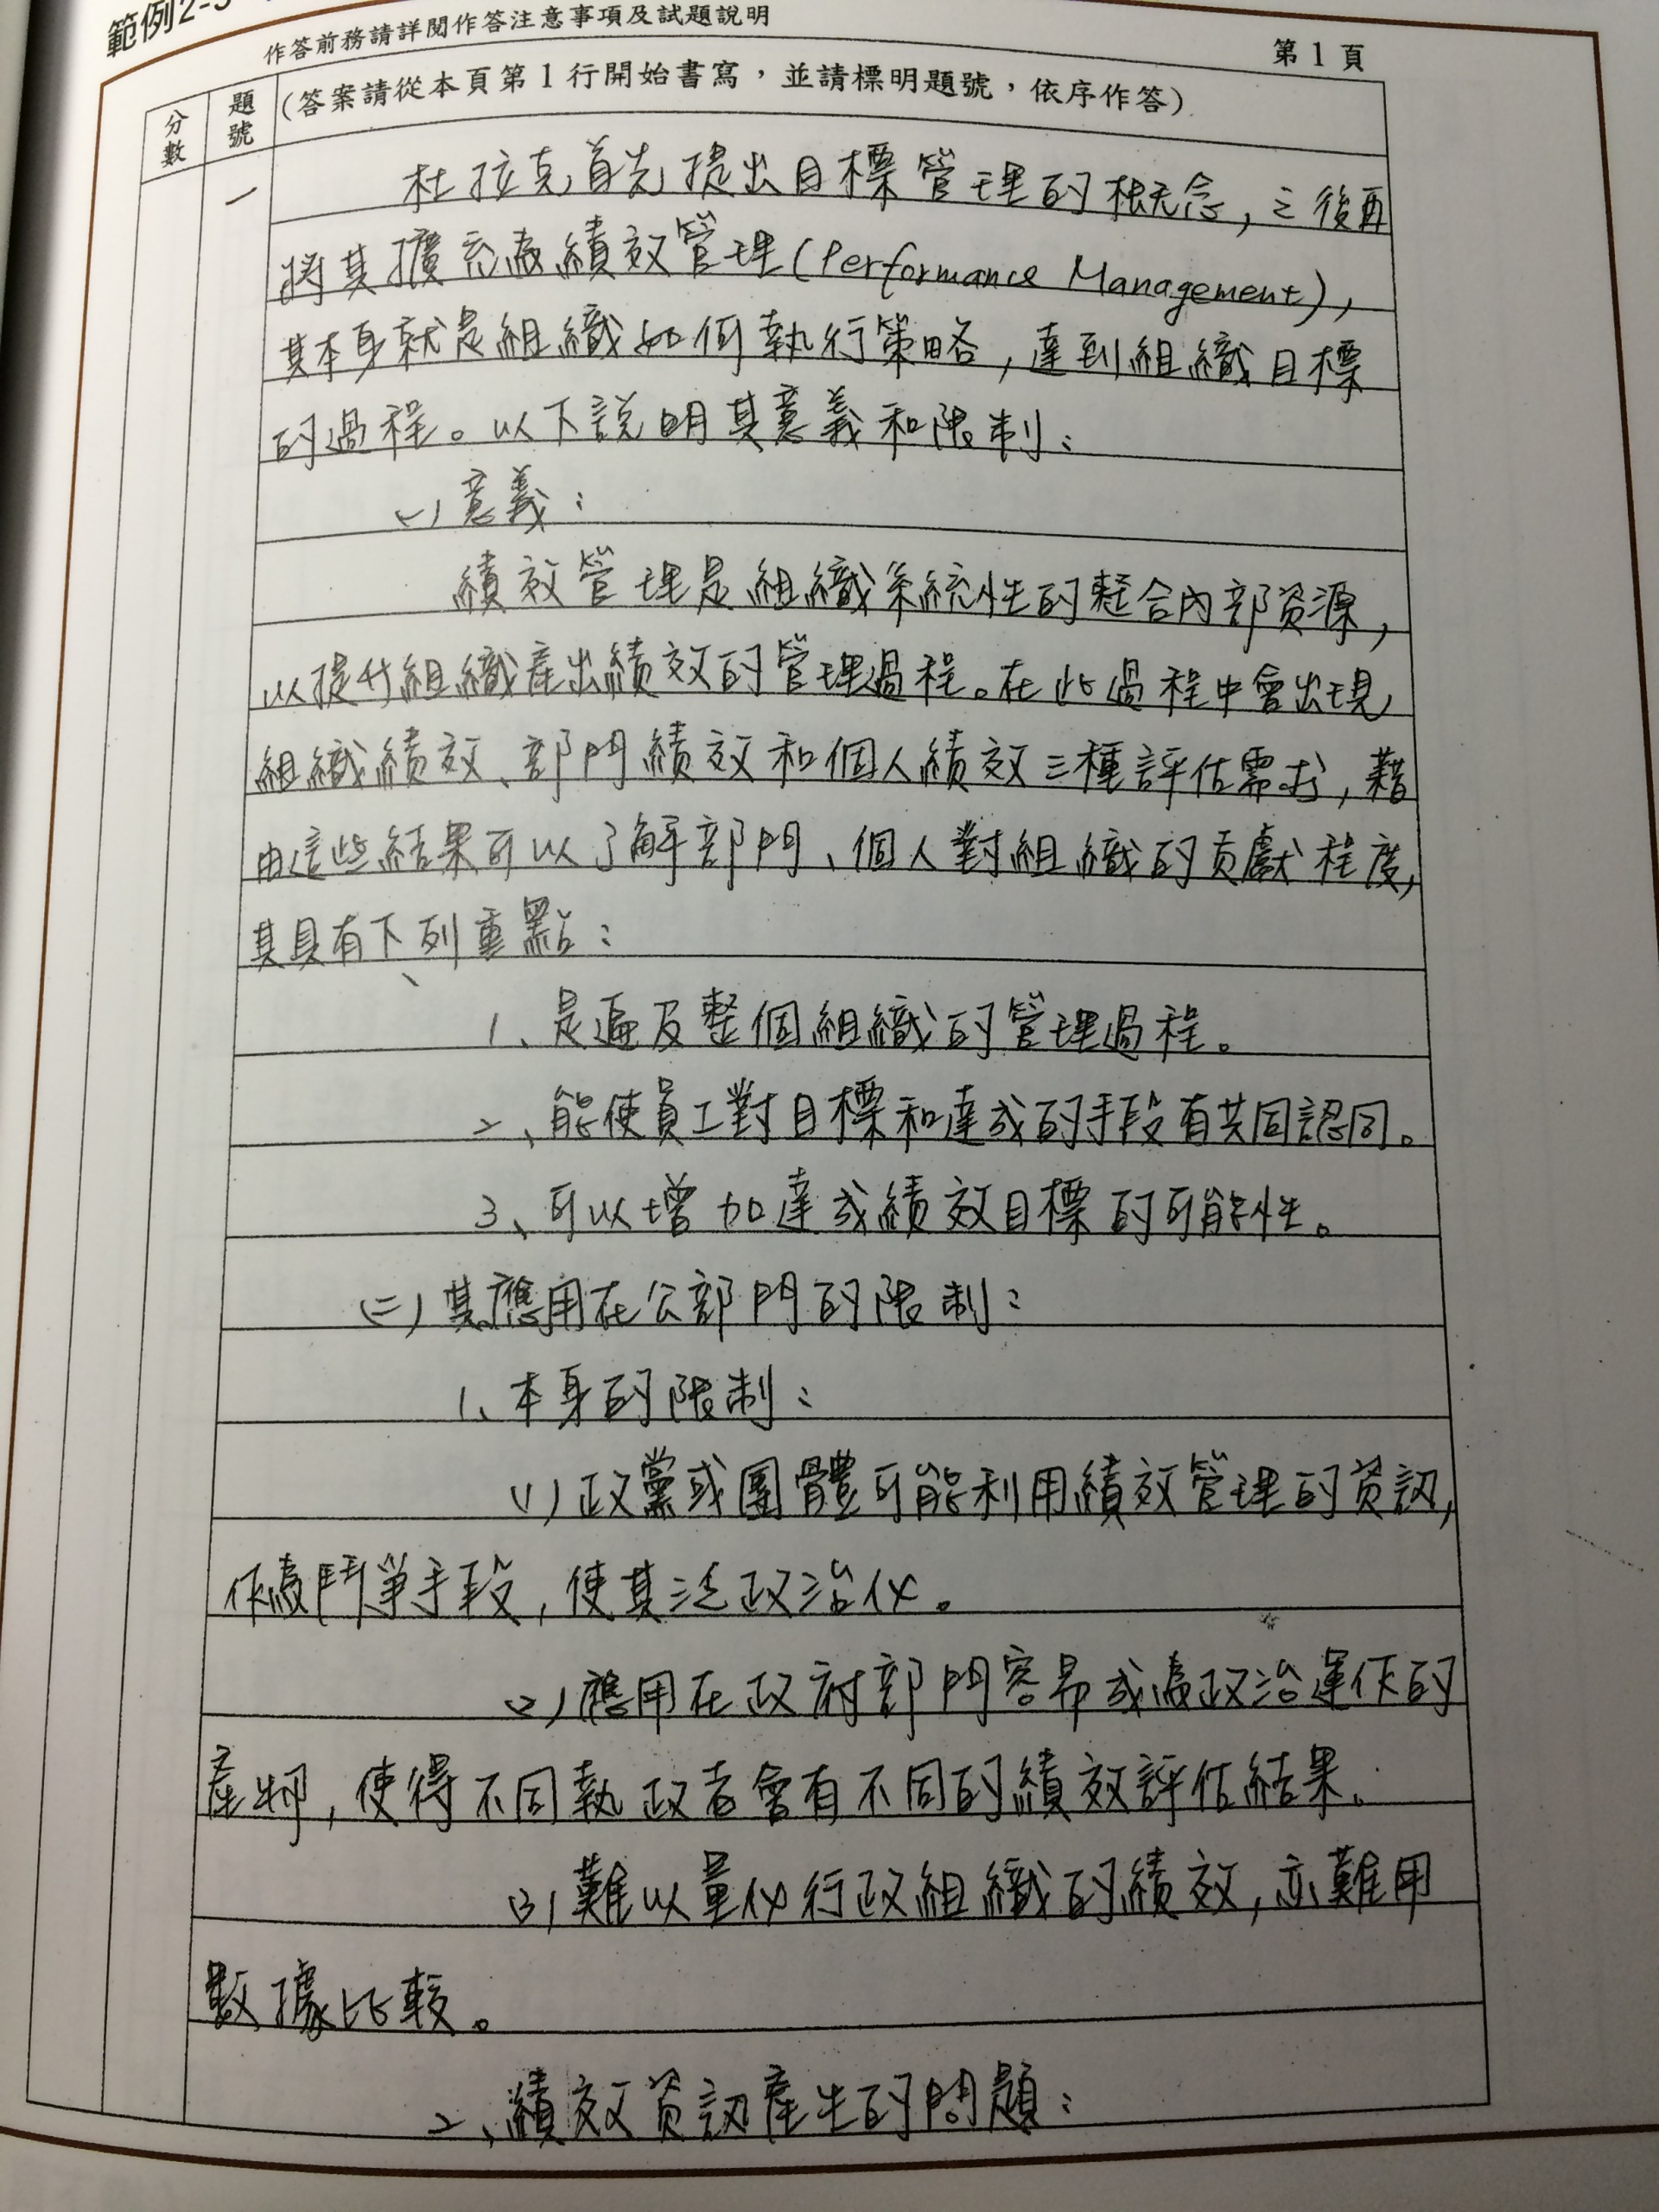 範例2-3
作答前務請詳閱作答注意事項及試題說明
第1頁
分數
題號
(答案請從本頁第1行開始書寫,並請標明題號,依序作答)
一
杜拉克首先提出目標管理的概念,之後再
將其擴充為績效管理(Performance Management),
其本身就是組織如何執行策略,達到組織目標
的過程。以下說明其意義和限制:
(一)意義:
績效管理是組織系統性的整合內部資源,
以提升組織產出績效的管理過程。在此過程中會出現
組織績效、部門績效和個人績效三種評估需求,藉
由這些結果可以了解部門、個人對組織的貢獻程度,
其具有下列重點:
1、是遍及整個組織的管理過程。
2、能使員工對目標和達成的手段有共同認同。
3、可以增加達成績效目標的可能性。
(二)其應用在公部門的限制:
1、本身的限制:
(1)政黨或團體可能利用績效管理的資訊,
作為鬥爭手段,使其泛政治化。
(2)應用在政府部門容易成為政治運作的
產物,使得不同執政者會有不同的績效評估結果。
(3)難以量化行政組織的績效,亦難用
數據比較。
2、績效資訊產生的問題: